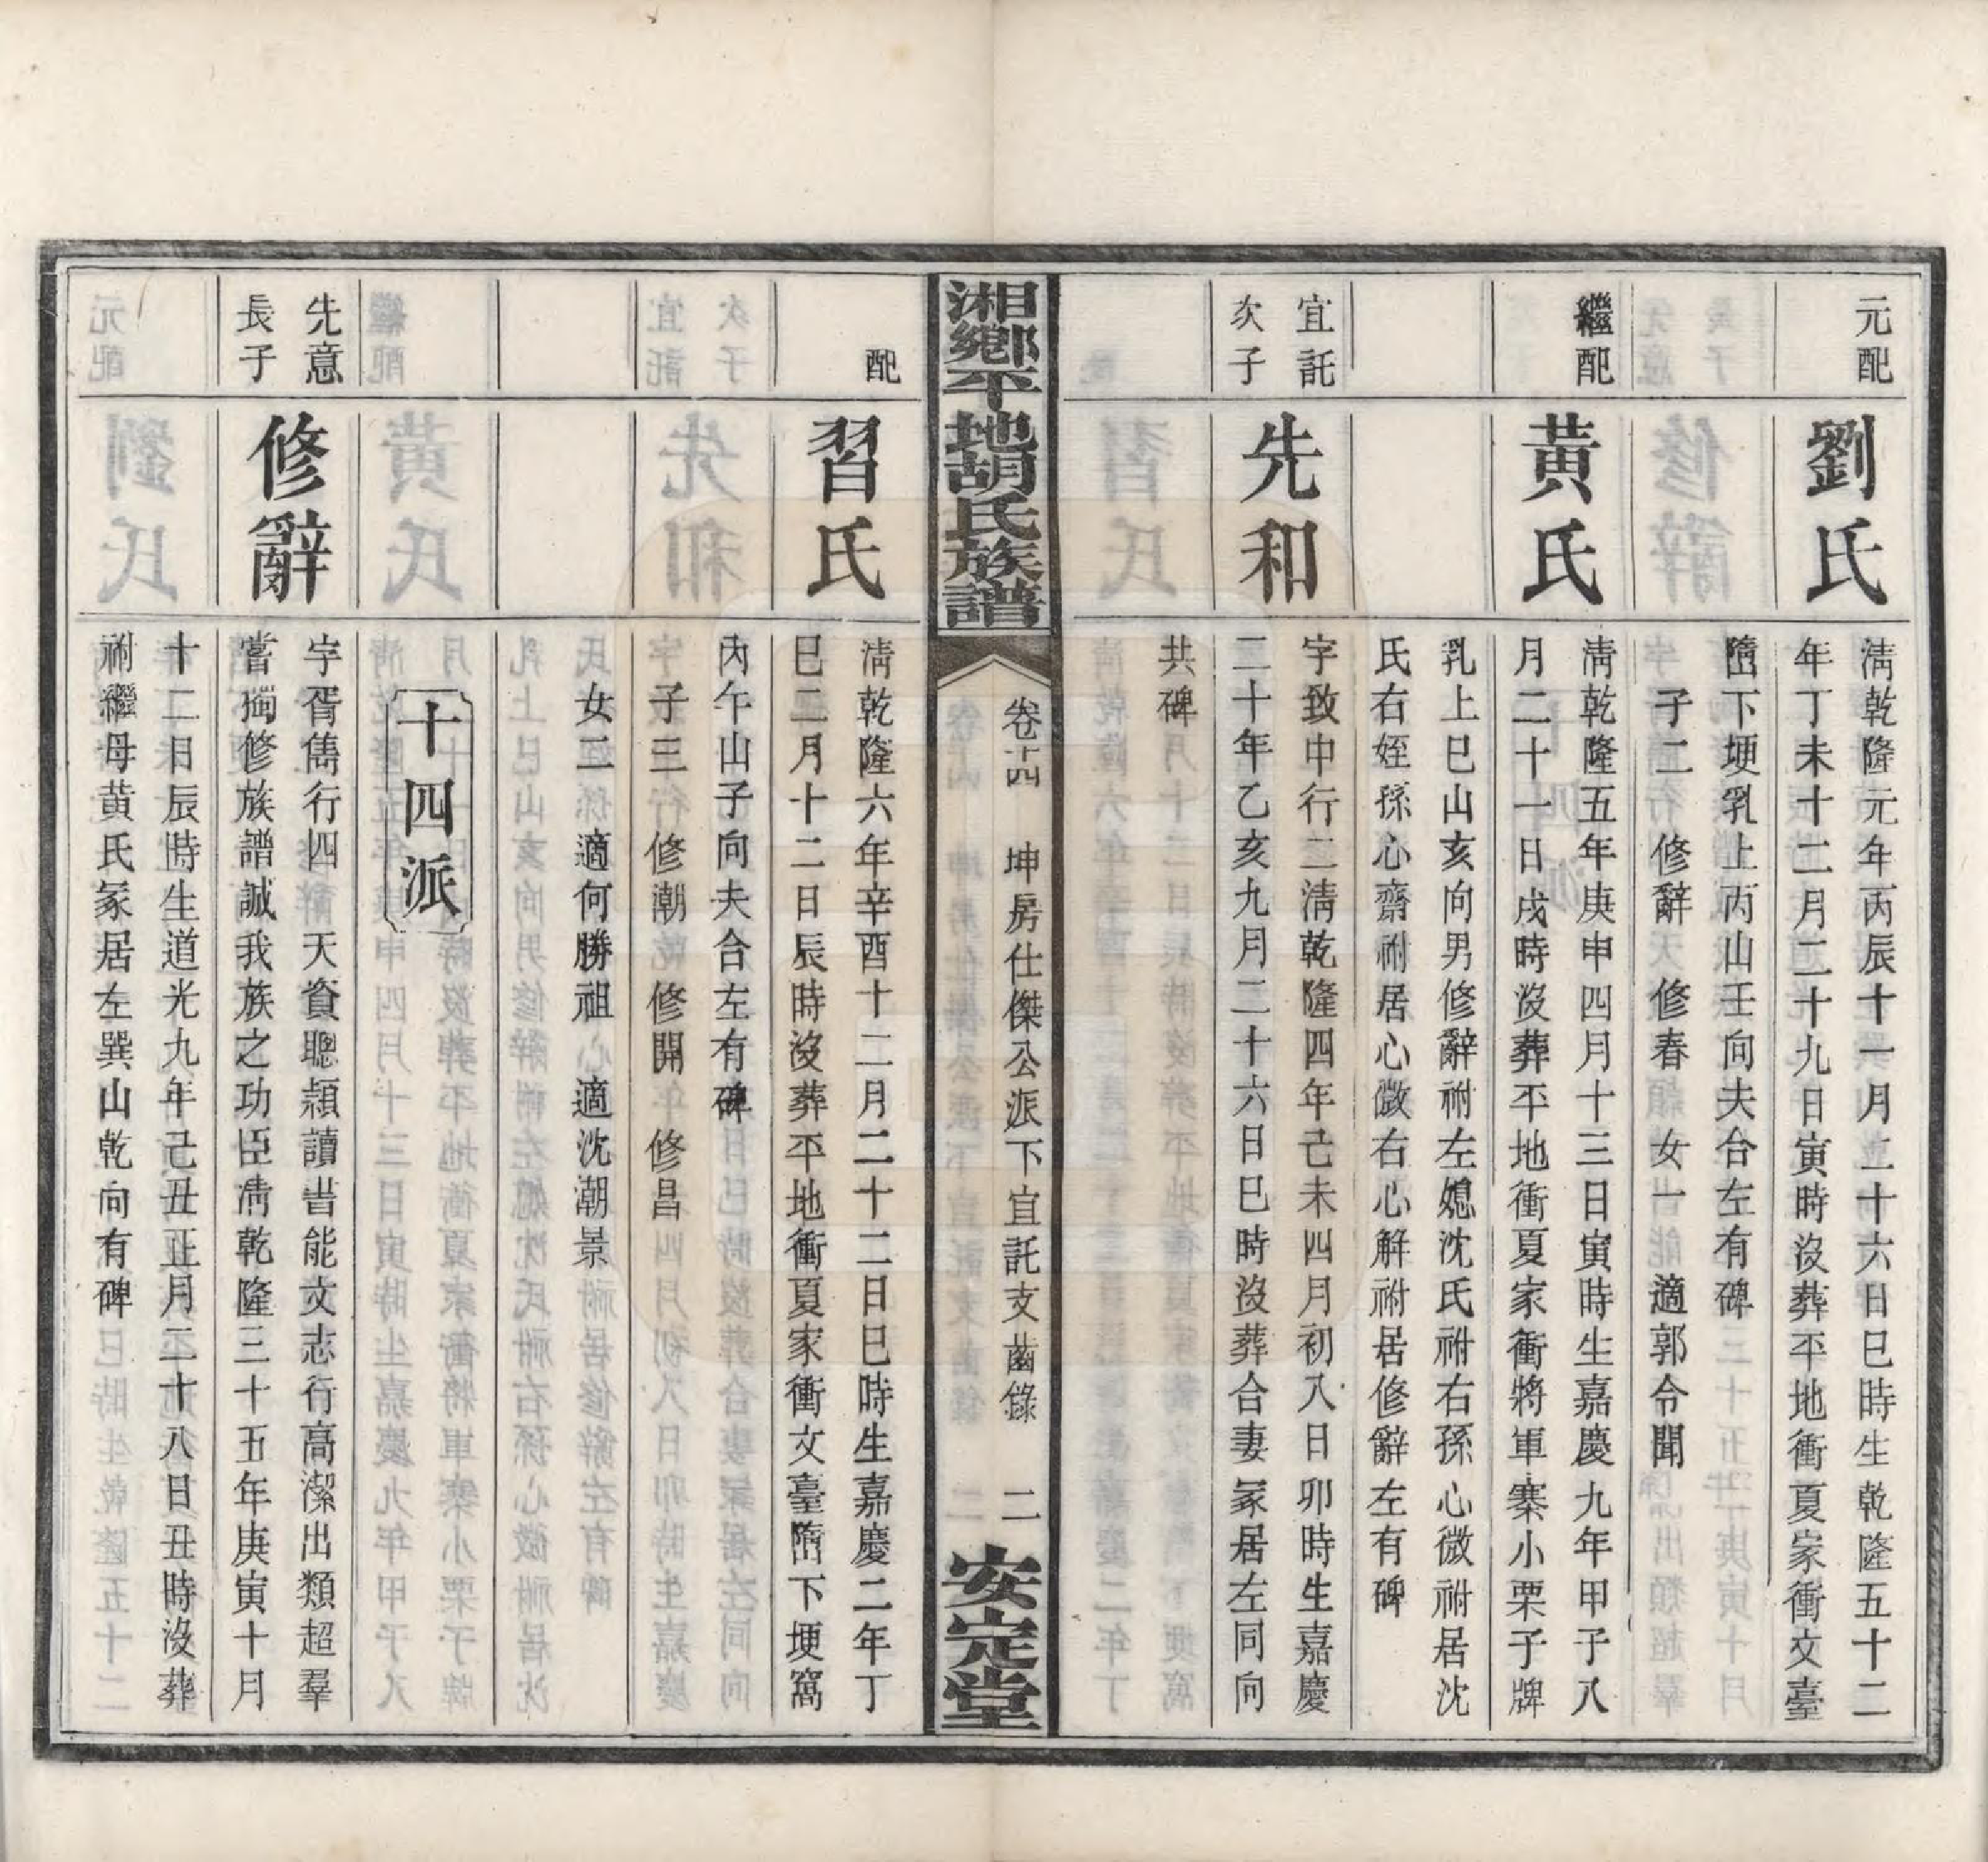 元配
劉氏
清乾隆元年丙辰十一月二十六日巳時生乾隆五十二
年丁未十二月二十九日寅時沒葬平地衝夏家衝文臺
墮下埂乳上丙山壬向夫合左有碑
子二　修辭　修春　女一　適郭令聞
繼配
黃氏
清乾隆五年庚申四月十三日寅時生嘉慶九年甲子八
月二十一日戌時沒葬平地衝夏家衝將軍寨小栗子牌
乳上巳山亥向男修辭祔左媳沈氏祔右孫心微祔居沈
氏右姪孫心齋祔居心微右心解祔居修辭左有碑
宜託
次子
先和
字致中行二清乾隆四年己未四月初八日卯時生嘉慶
二十年乙亥九月二十六日巳時沒葬合妻冢居左同向
共碑
湘鄉平地胡氏族譜
卷十四　坤房仕傑公派下宜託支齒錄　二
安定堂
配
習氏
清乾隆六年辛酉十二月二十二日巳時生嘉慶二年丁
巳二月十二日辰時沒葬平地衝夏家衝文臺墮下埂窩
內午山子向夫合左有碑
子三　修潮　修開　修昌
女二　適何勝祖　適沈潮景
十四派
先意
長子
修辭
字胥儁行四天資聰潁讀書能文志行高潔出類超羣
嘗獨修族譜誠我族之功臣清乾隆三十五年庚寅十月
十二日辰時生道光九年己丑正月二十八日丑時沒葬
祔繼母黃氏冢居左巽山乾向有碑